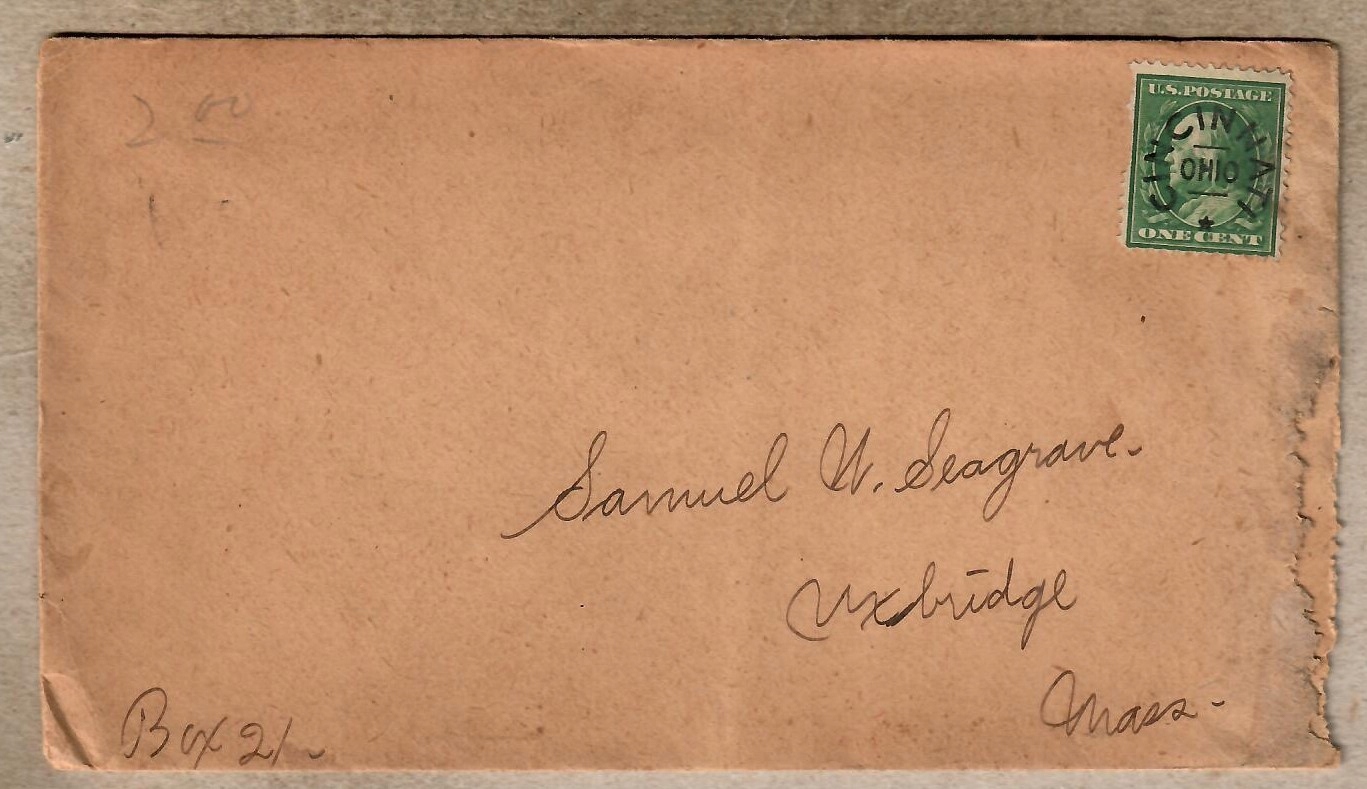 2 00
U.S. POSTAGE
CINCINNATI
OHIO
ONE CENT
Samuel W. Seagrave.
Uxbridge
Mass.
Box 21